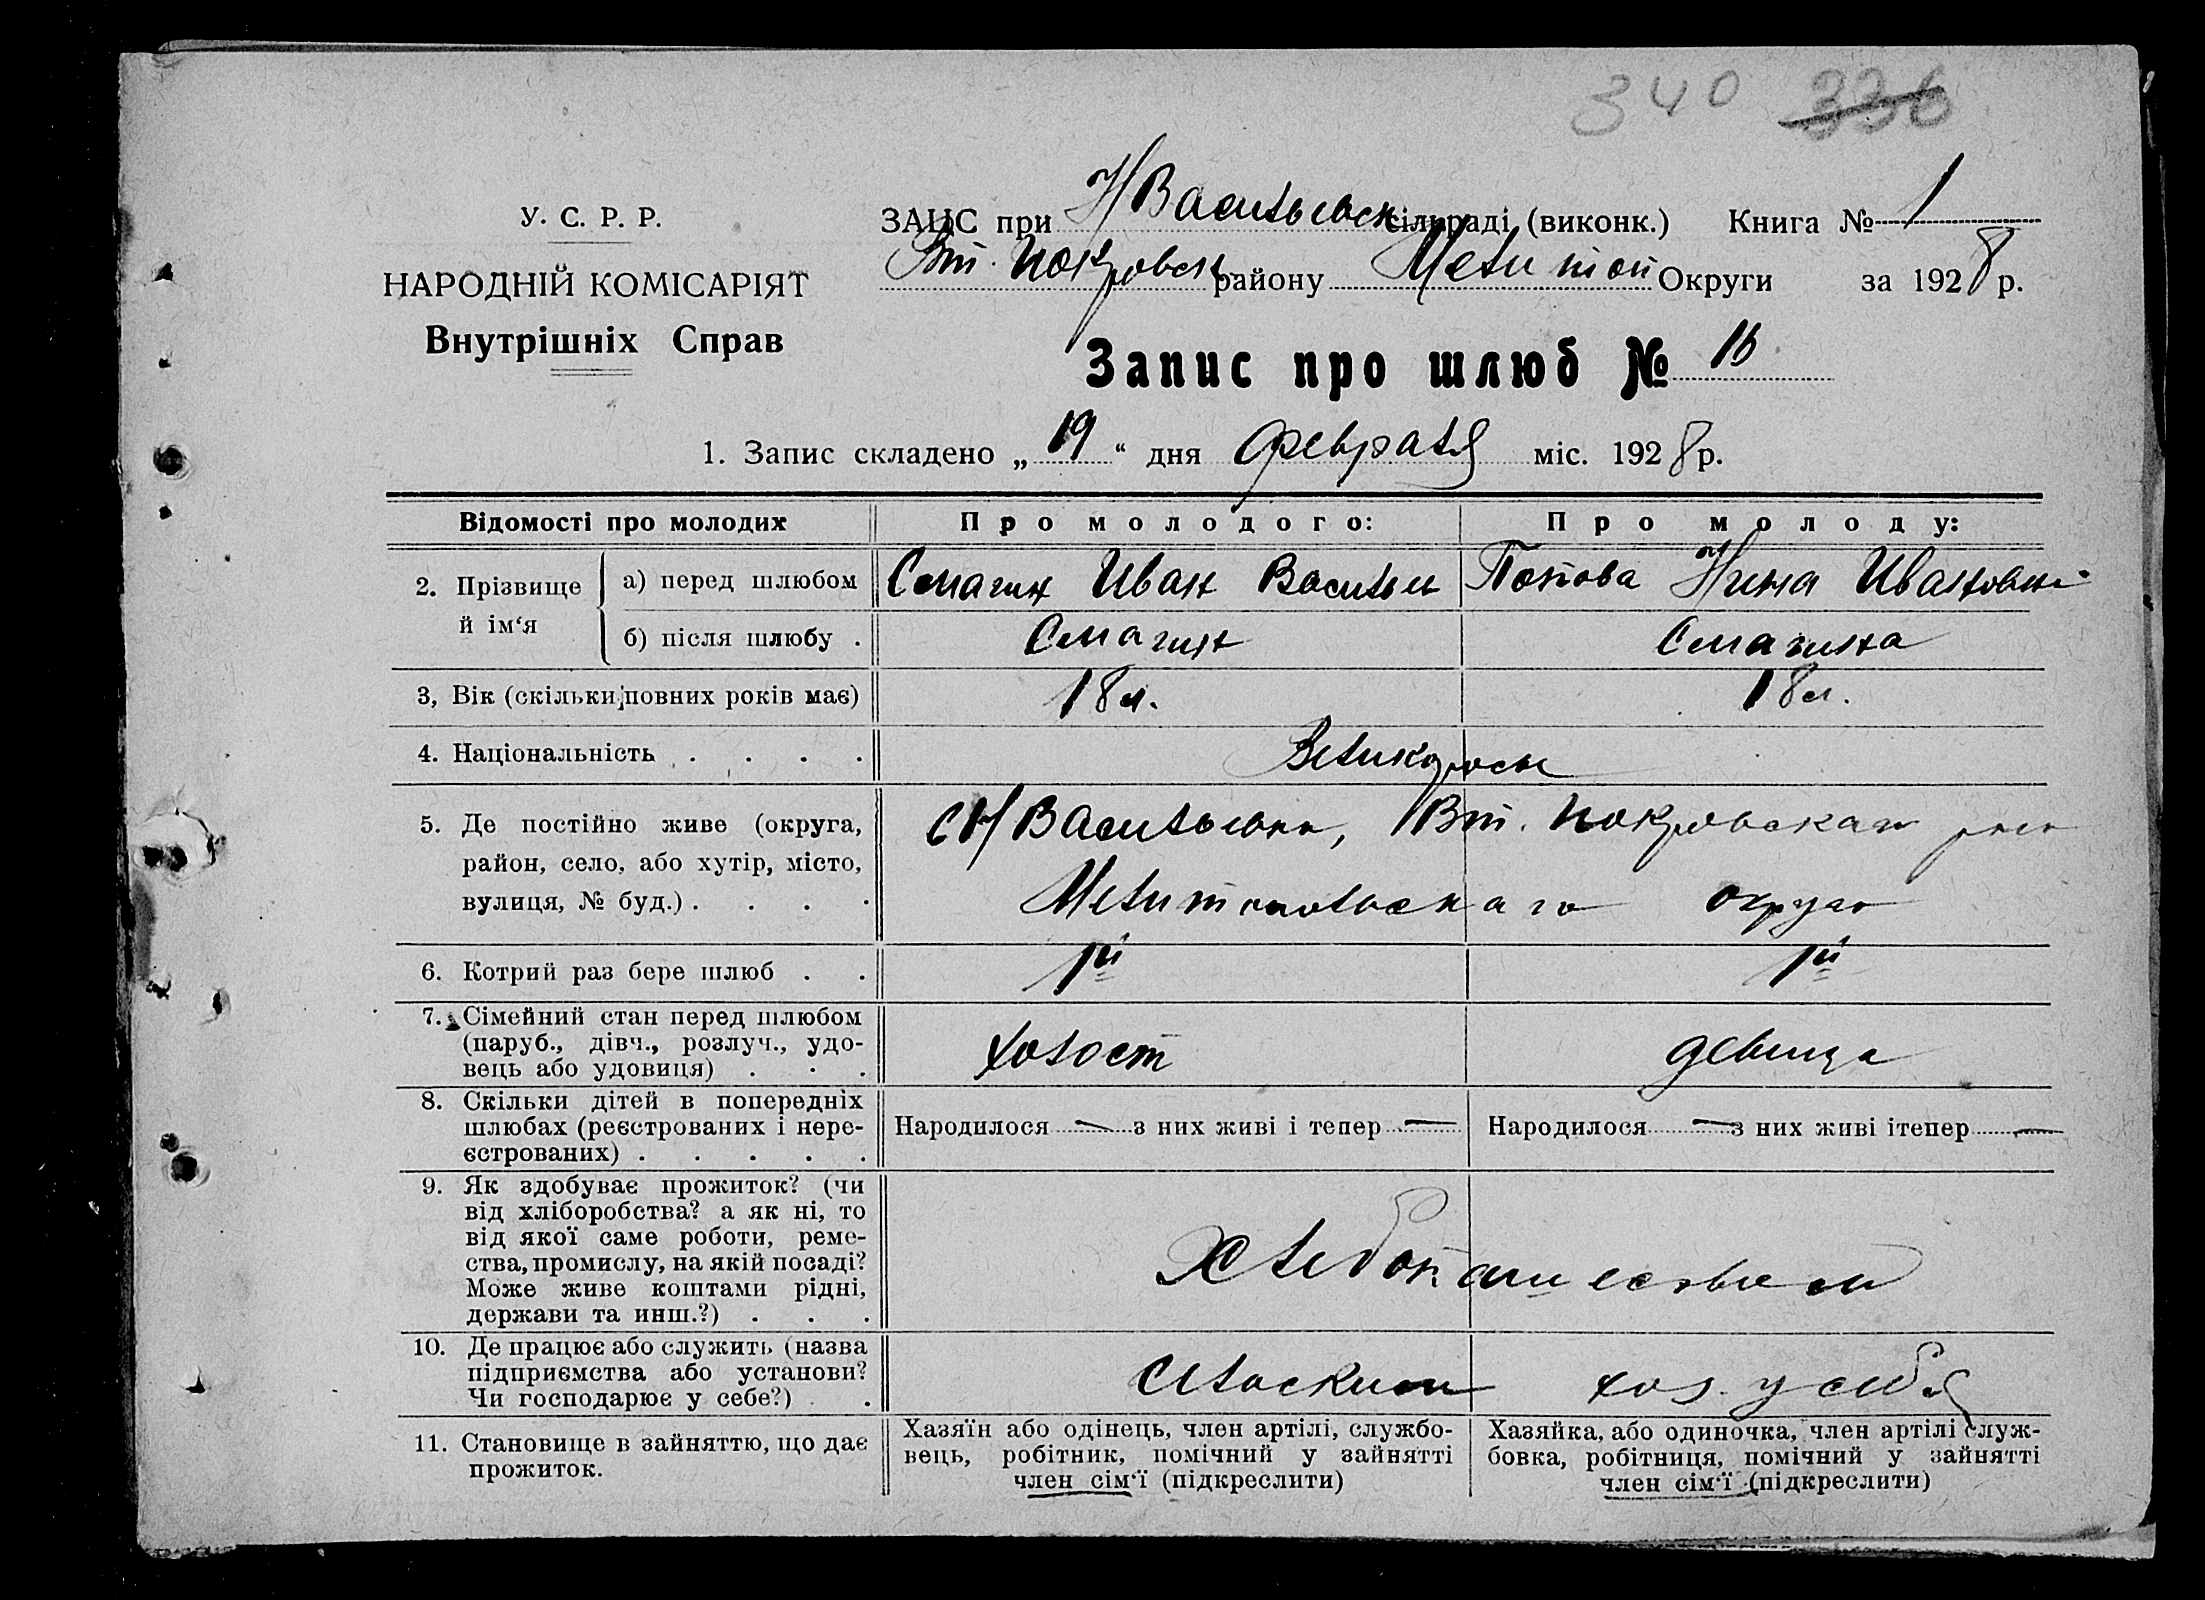 340 336
У. С. Р. Р.
НАРОДНІЙ КОМІСАРІЯТ
Внутрішніх Справ
ЗАЦС при Н Васильевск сільраді (виконк.) Книга № 1
Вт. Покровск району Мелитоп Округи за 1928 р.
Запис про шлюб № 16
1. Запис складено „ 19 “ дня февраля міс. 1928 р.
Відомості про молодих Про молодого: Про молоду:
2. Прізвище й ім‘я
а) перед шлюбом Смагин Иван Васильев Попова Нина Ивановна
б) після шлюбу . Смагин Смагина
3, Вік (скільки повних років має) 18 л. 18 л.
4. Національність . . . . Великоросы
5. Де постійно живе (округа,
район, село, або хутір, місто,
вулиця, № буд.) . . . .
с Н Васильевка, Вт. Покровскаго
Мелитопольскаго округа
6. Котрий раз бере шлюб . . 1й 1й
7. Сімейний стан перед шлюбом
(паруб., дівч., розлуч., удо-
вець або удовиця) . . .
холост девица
8. Скільки дітей в попередніх
шлюбах (реєстрованих і нере-
єстрованих) . . . . .
Народилося — з них живі і тепер — Народилося — з них живі ітепер —
9. Як здобуває прожиток? (чи
від хліборобства? а як ні, то
від якої саме роботи, реме-
ства, промислу, на якій посаді?
Може живе коштами рідні,
держави та инш.?) . . .
Хлебопашеством
10. Де працює або служить (назва
підприємства або установи?
Чи господарює у себе?) . .
хоз. у себя
11. Становище в зайняттю, що дає
прожиток.
Хазяїн або одінець, член артілі, службо-
вець, робітник, помічний у зайнятті
член сім‘ї (підкреслити)
Хазяйка, або одиночка, член артілі служ-
бовка, робітниця, помічний у зайнятті
член сім‘ї (підкреслити)